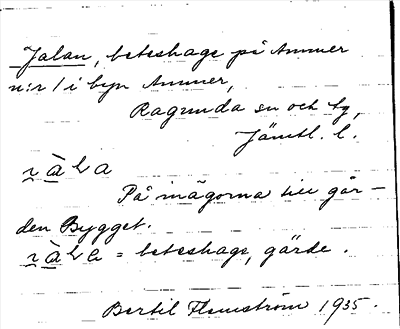 Jalan, beteshage på Ammer
n:r 1 i byn Ammer,
Ragunda sn och tg,
Jämtl. l.
På mägorna till går-
den Bygget.
= beteshage, gärde.
Bertil Flemström 1935.